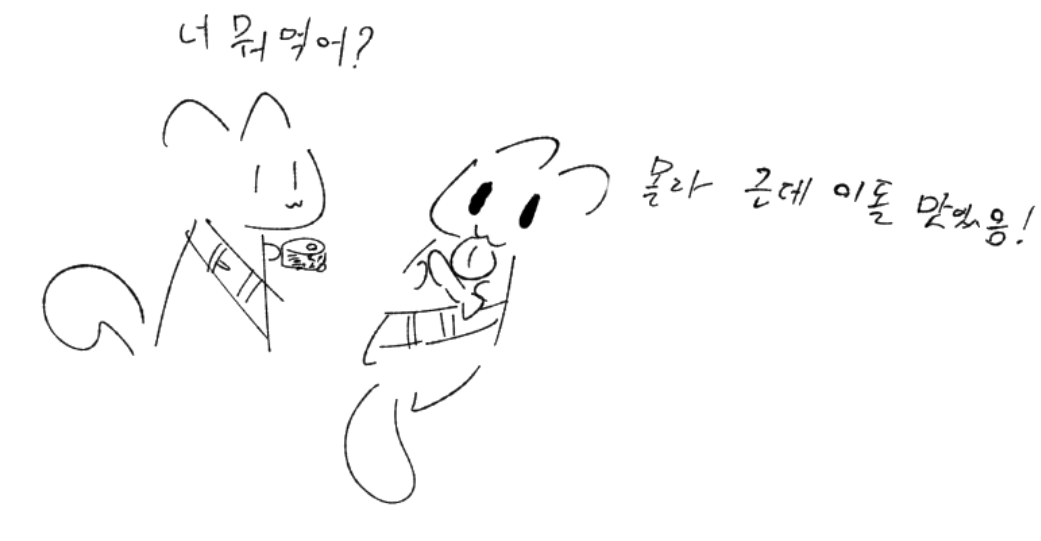 너 뭐 먹어?
몰라 근데 이돌 맛있음!